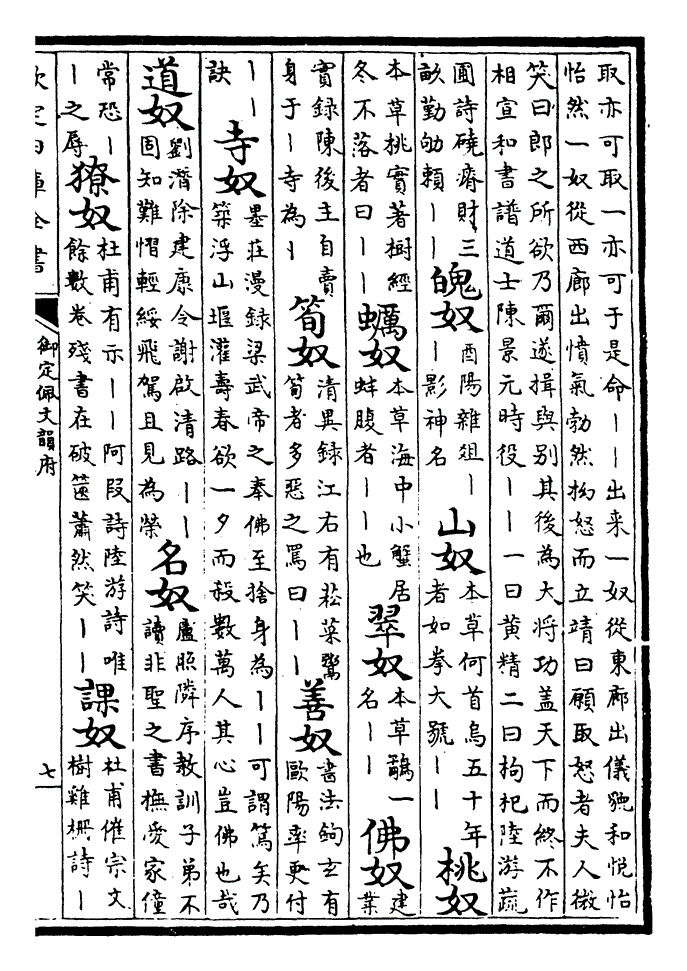 取亦可取一亦可于是命丨丨出来一奴從東廊出儀貌和悅怡
怡然一奴從西廊出憤氣勃然拗怒而立靖曰顧取怒者夫人微
笑曰郎之所欲乃爾遂揖與别其後為大将功盖天下而終不作
相宣和書譜道士陳景元時役丨丨一曰黄精二曰拘杞陸游蔬
圃詩磽瘠財三
畝勤劬賴丨丨
魄奴
酉陽雜俎丨
丨影神名
山奴
本草何首烏五十年
者如拳大號丨丨
桃奴
本草桃實著樹經
冬不落者曰丨丨
蠣奴
本草海中小蟹居
蚌腹者丨丨也
翠奴
本草鷸一
名丨丨
佛奴
建
業
實録陳後主自賣
身于丨寺為丨
筍奴
清異録江右有菘菜鬻
筍者多惡之罵曰丨丨
善奴
書法鉤玄有
歐陽率更付
丨丨
訣
寺奴
墨莊漫録梁武帝之奉佛至捨身為丨丨可謂篤矣乃
築浮山堰灌壽春欲一夕而殺數萬人其心豈佛也哉
道奴
劉潛除建康令謝啟清路丨丨
固知難慴輕綏飛駕且見為榮
名奴
盧照隣序教訓子弟不
讀非聖之書撫愛家僮
常恐丨
丨之辱
獠奴
杜甫有示丨丨阿段詩陸游詩唯
餘數卷殘書在破篋蕭然笑丨丨
課奴
杜甫催宗文
樹雞柵詩丨
欽定四庫全書
御定佩文韻府
七